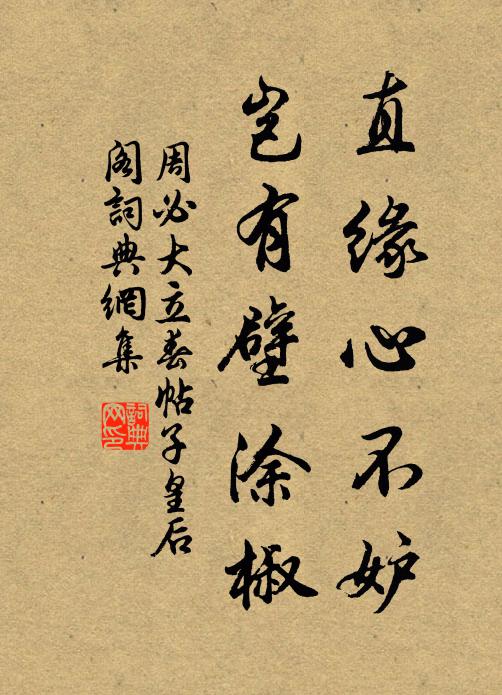 直緣心不妒
豈有壁涂椒
周必大立春帖子皇后
閣詞典網集
詞典网印